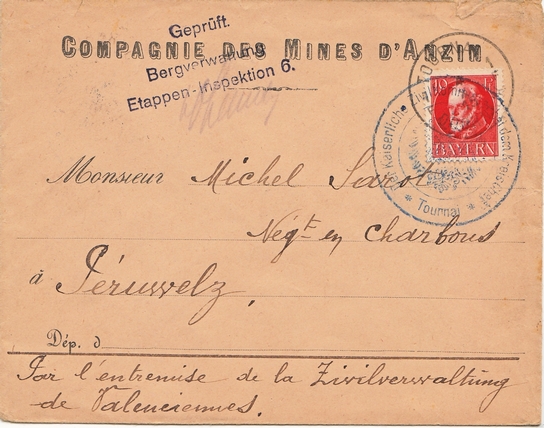 COMPAGNIE DES MINES D'ANZIN
Geprüft.
Bergverwaltung
Etappen-Inspektion 6.
10
BAYERN
Kaiserliche
bei dem Kreischef
* Tournai *
Monsieur Michel
Négt en Charbons
à Péruwelz,
Dép. d
Par l'entremise de la Zivilverwaltung
de Valenciennes.